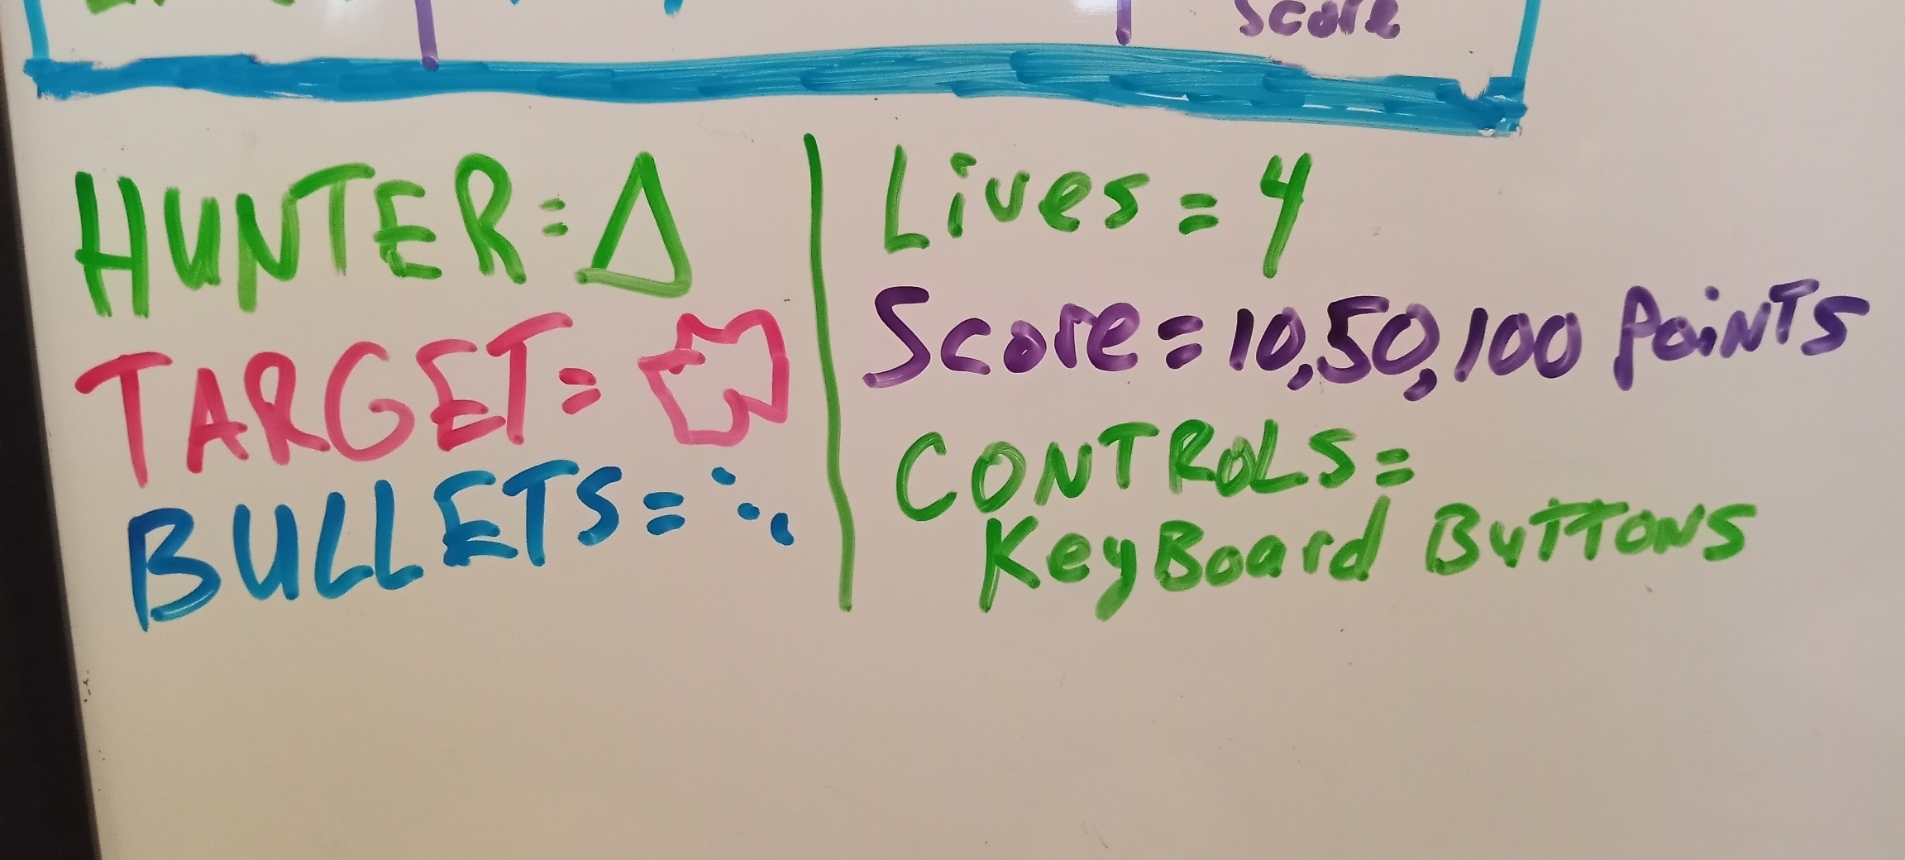 Score
HUNTER = Δ
TARGET =
BULLETS =
Lives = 4
Score = 10, 50, 100 Points
CONTROLS =
KeyBoard BuTTONS